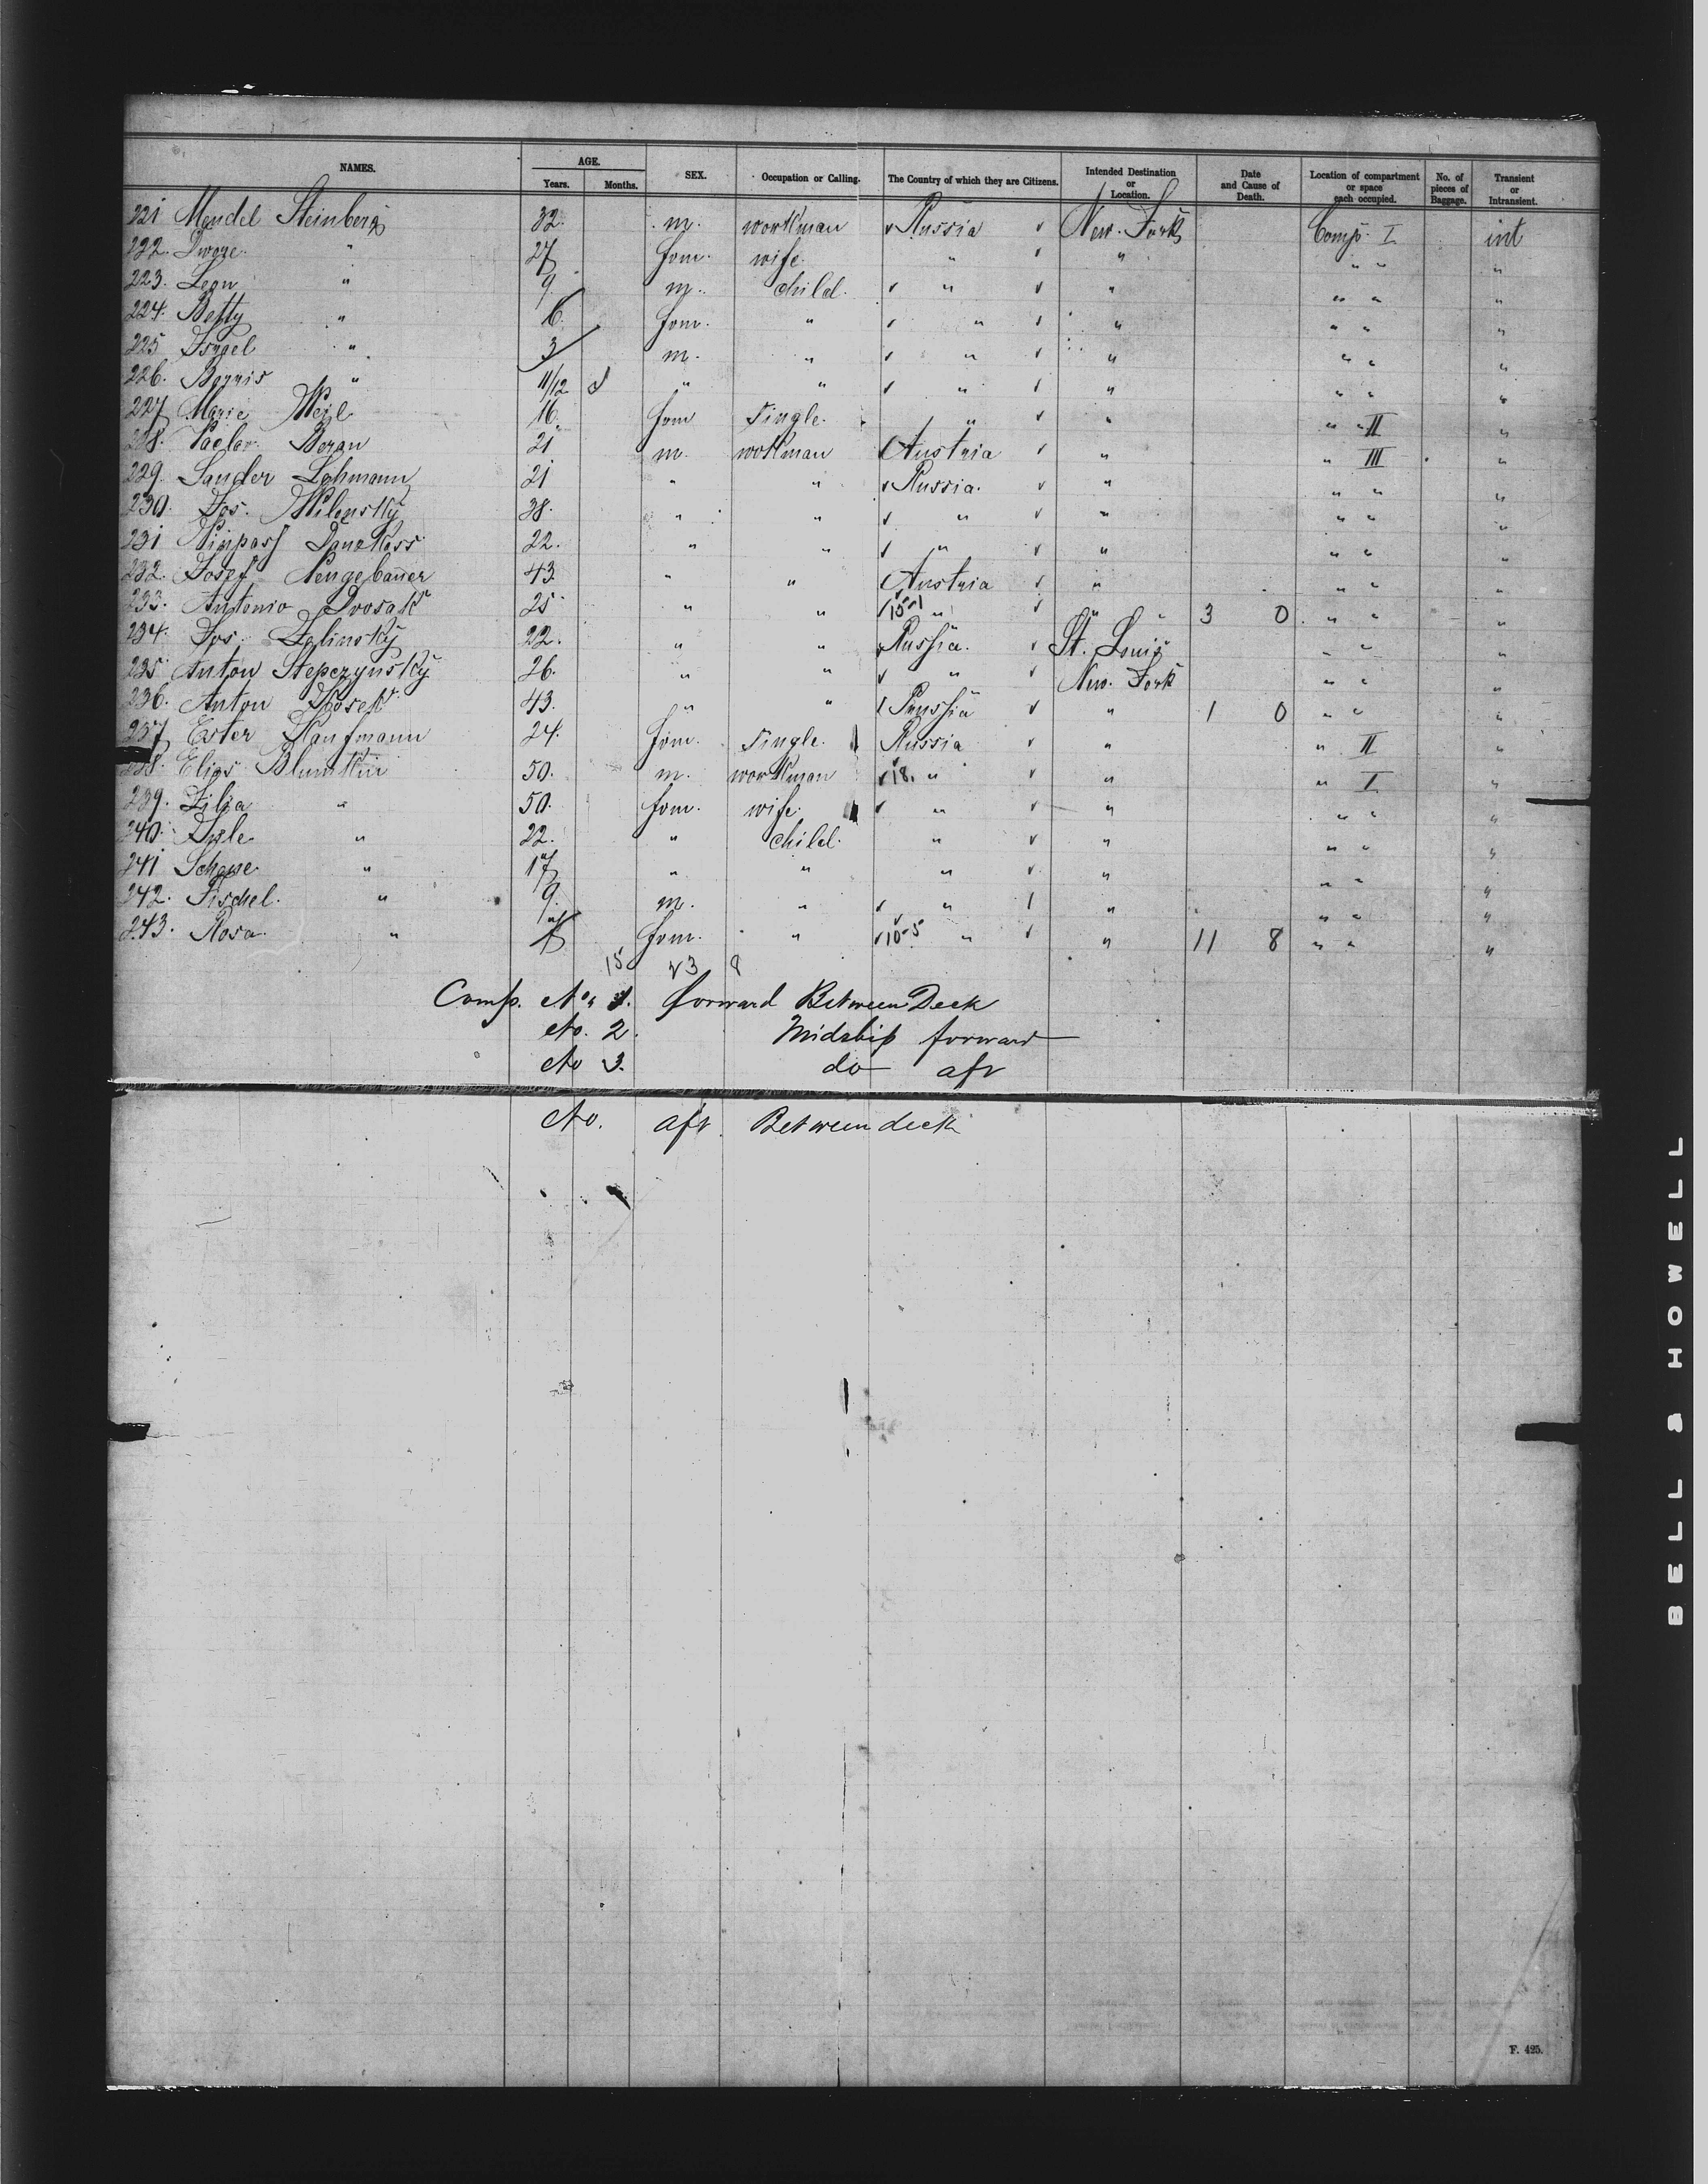 NAMES. AGE. Years. Months. SEX. Occupation or Calling. The Country of which they are Citizens. Intended Destination or Location. Date and Cause of Death. Location of compartment or space each occupied. No. of pieces of Baggage. Transient or Intransient.
221 Mendel Steinberg 32. m. workman Russia New. York Comp. I int
222. " 27 fem. wife. " " " " "
223. Leon " 9. m. child. " " " " "
224. Betty " 6. fem. " " " " " "
225 Israel " 3 m. " " " " " "
226. " 11/12 " " " " " " "
227 Marie Weil 16. fem Single. " " " " II "
228. Beran 21 m. workman Austria " " III "
229. Sander Lehmann 21 " " Russia. " " " "
230. Jos. Wilensky 38. " " " " " " "
231 22. " " " " " " "
232. Josef Neugebauer 43. " " Austria " " " "
233. Antonio Dvorak 25 " " 15-1 " " " 3 0 " " "
234. Jos. Zelinsky 22. " " Russia. St. Louis " " "
235 Anton Stepczynsky 26. " " " New. York " " "
236. Anton 43. " " Prussia " 1 0 " " "
237 Ester Kaufmann 24. fem. Single. Russia " " II "
238. Elias 50. m. workman 18. " " " I "
239. " 50. fem. wife. " " " " "
240. " 22. " child. " " " " "
241 " 17 " " " " " " "
242. Fischel. " 9. m. " " " " " "
243. Rosa. " fem. " 10-5 " " 11 8 " " "
15 23 8
Comp. No. 1. forward Between Deck
No. 2. Midship forward
No 3. do aft
No. aft. Between deck
F. 425.
BELL & HOWELL